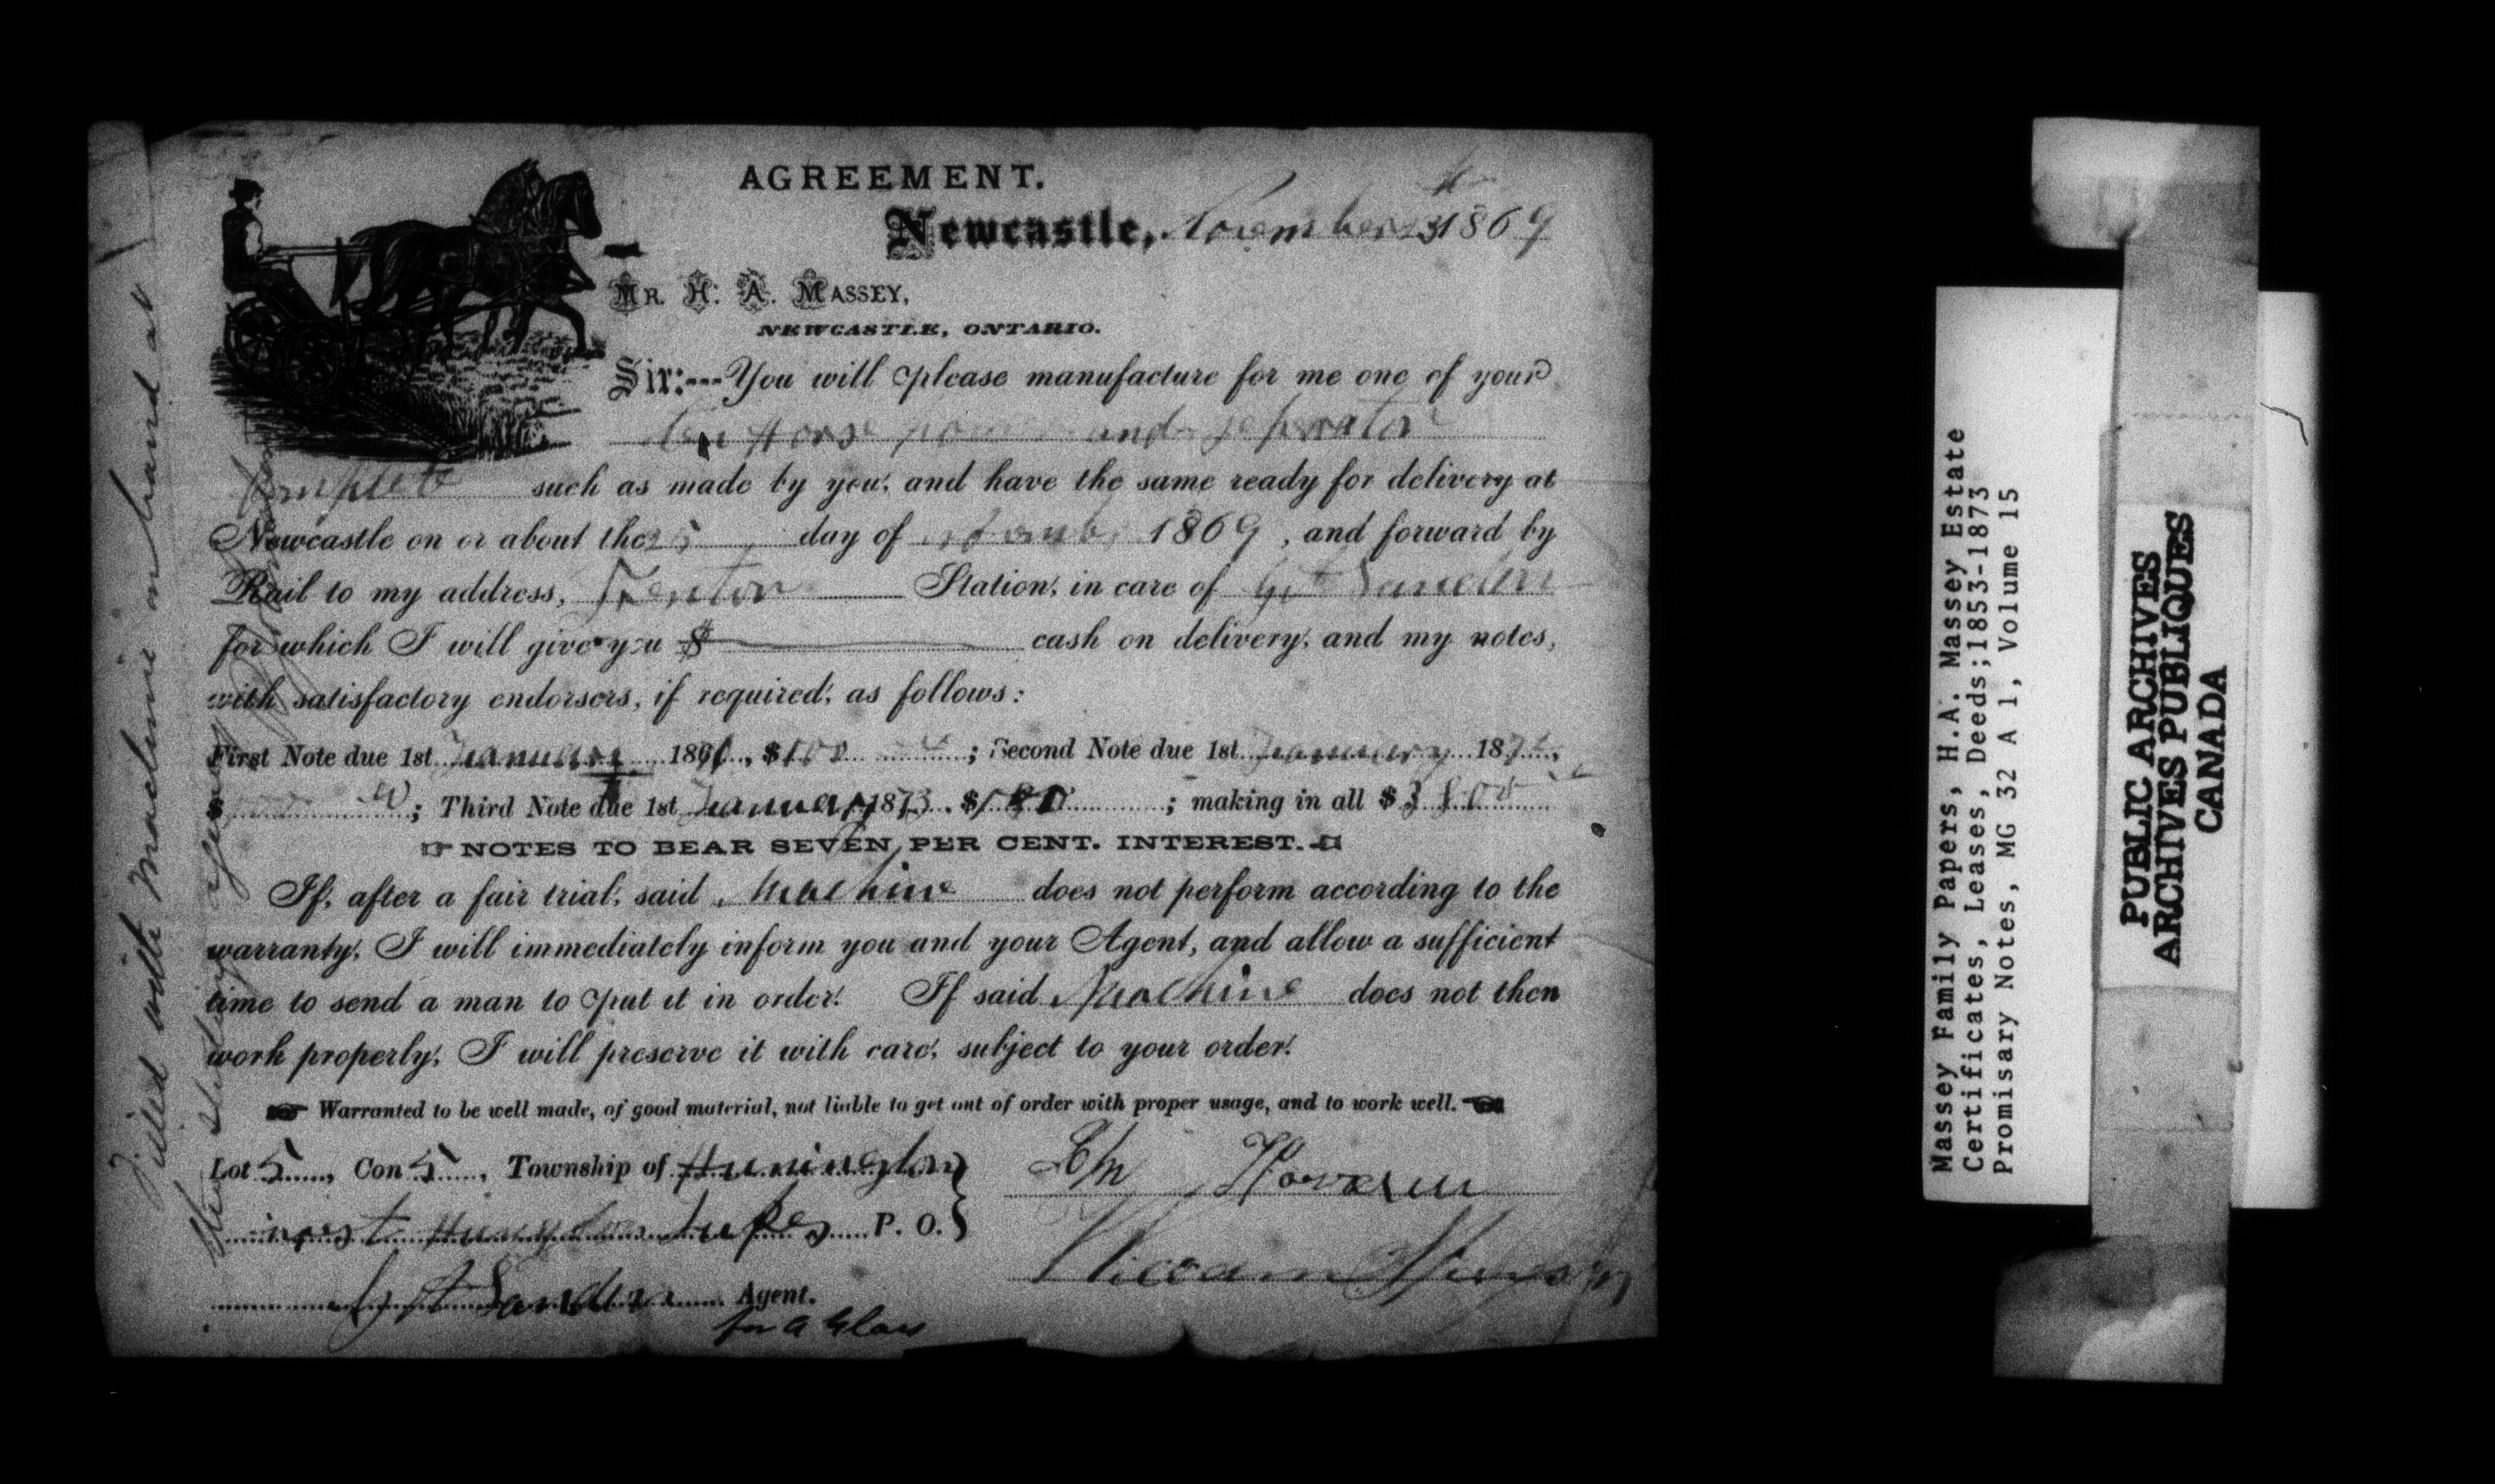 AGREEMENT.
Newcastle, November 1869
MR. H. A. MASSEY,
NEWCASTLE, ONTARIO.
Sir:---You will please manufacture for me one of your
ten Horse power and seperator
complete such as made by you, and have the same ready for delivery at
Newcastle on or about the 25 day of 1869, and forward by
Rail to my address, Trenton Station, in care of
for which I will give you $ cash on delivery, and my notes,
with satisfactory endorsers, if required, as follows:
First Note due 1st January 18 , $100 ; Second Note due 1st January 187
$ ; Third Note due 1st January 1873. $180 ; making in all $380
NOTES TO BEAR SEVEN PER CENT. INTEREST.
If, after a fair trial, said Machine does not perform according to the
warranty, I will immediately inform you and your Agent, and allow a sufficient
time to send a man to put it in order. If said Machine does not then
work properly, I will preserve it with care, subject to your order.
Warranted to be well made, of good material, not liable to get out of order with proper usage, and to work well.
Lot 5, Con 5, Township of
P. O.
Agent.
Filled with Machine in hand at
Massey Family Papers, H.A. Massey Estate
Certificates, Leases, Deeds;1853-1873
Promisary Notes, MG 32 A 1, Volume 15
PUBLIC ARCHIVES
ARCHIVES PUBLIQUES
CANADA